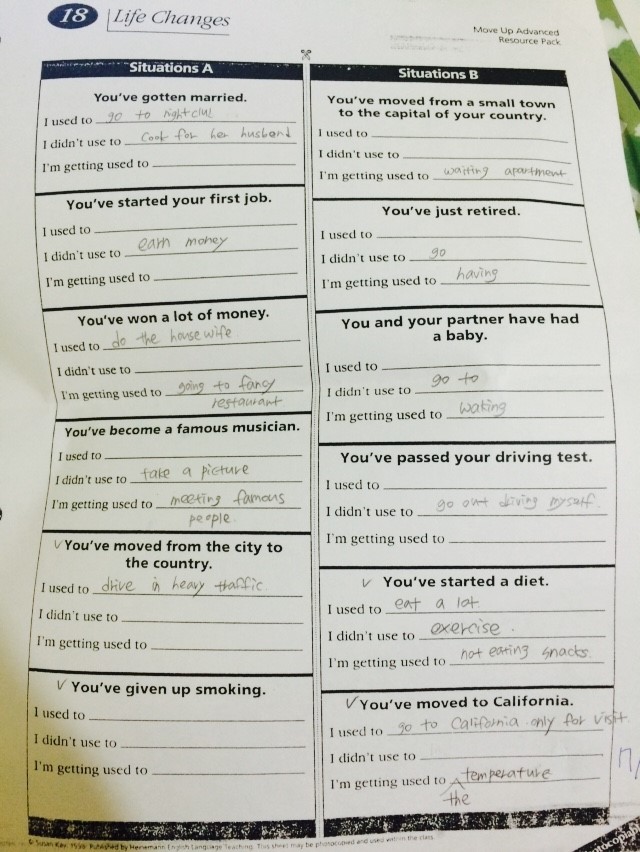 18 Life Changes
Move Up Advanced
Resource Pack
Situations A
You've gotten married.
I used to go to nightclub
I didn't use to cook for her husband
I'm getting used to
You've started your first job.
I used to
I didn't use to earn money
I'm getting used to
You've won a lot of money.
I used to do the housewife
I didn't use to
I'm getting used to going to fancy
restaurant
You've become a famous musician.
I used to
I didn't use to take a picture
I'm getting used to meeting famous
people.
✓You've moved from the city to
the country.
I used to drive in heavy traffic.
I didn't use to
I'm getting used to
✓You've given up smoking.
I used to
I didn't use to
I'm getting used to
Situations B
You've moved from a small town
to the capital of your country.
I used to
I didn't use to
I'm getting used to waiting apartment
You've just retired.
I used to
I didn't use to go
I'm getting used to having
You and your partner have had
a baby.
I used to
I didn't use to go to
I'm getting used to waking
You've passed your driving test.
I used to
I didn't use to go out driving myself.
I'm getting used to
✓ You've started a diet.
I used to eat a lot.
I didn't use to exercise.
I'm getting used to not eating snacks.
✓You've moved to California.
I used to go to California only for visit
I didn't use to
I'm getting used to temperature
the
© Susan Kay, 1996. Published by Heinemann English Language Teaching. This sheet may be photocopied and used within the class.